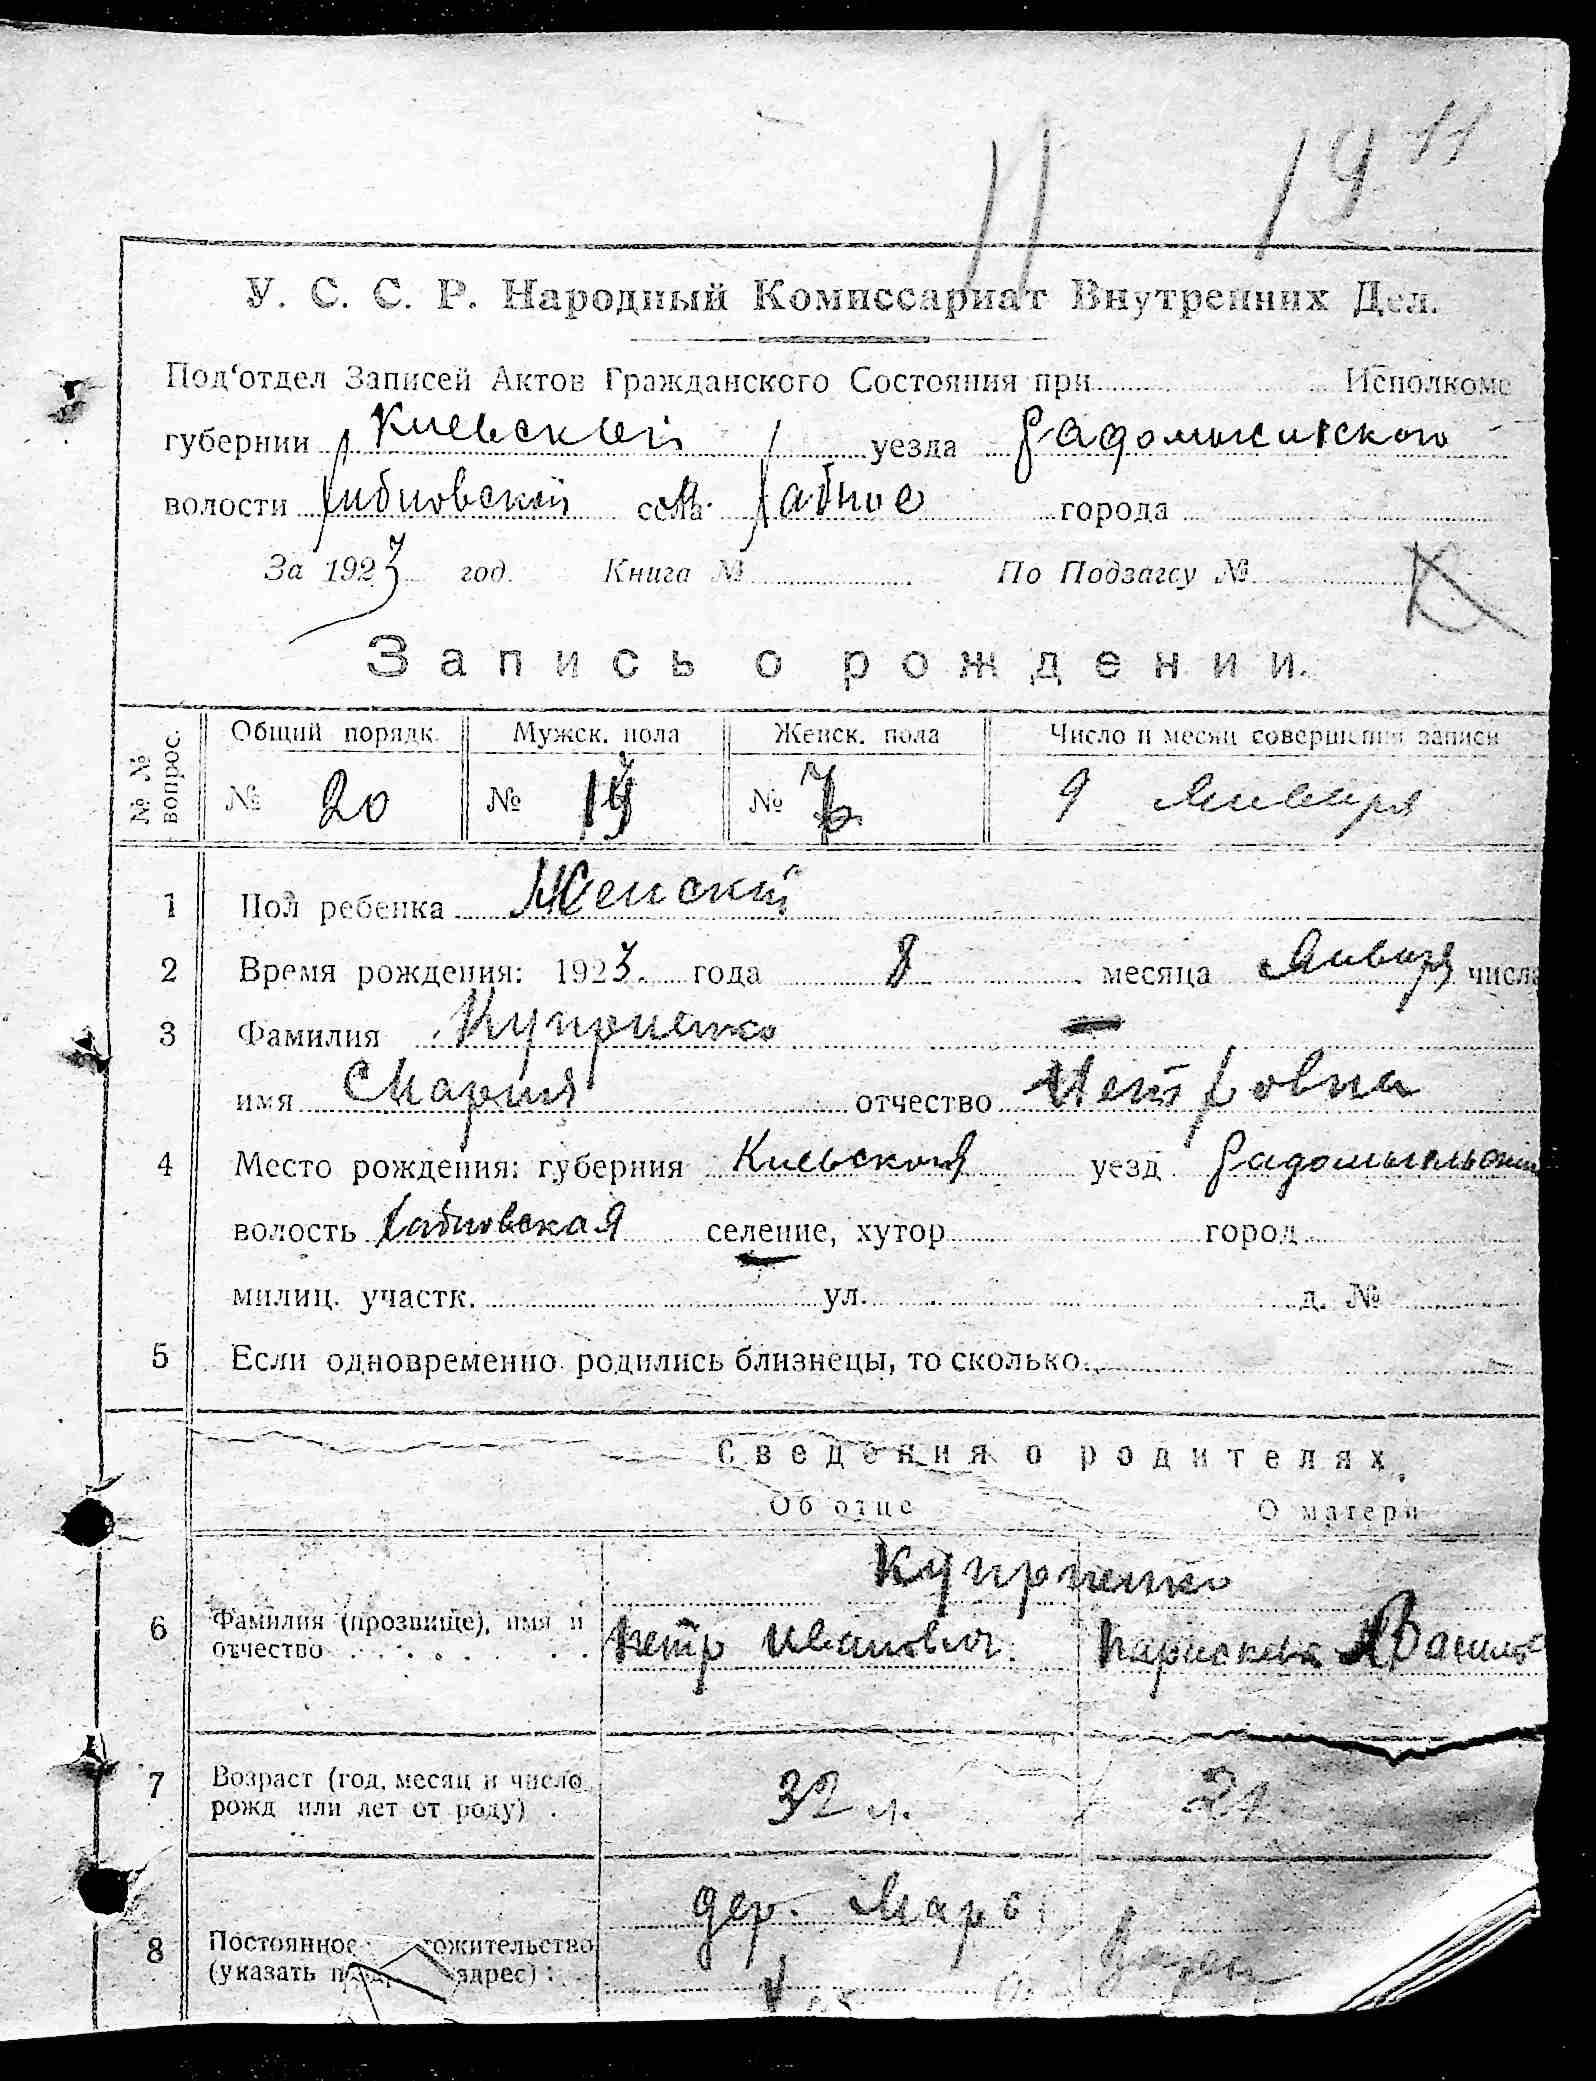 11 19 11
У. С. С. Р. Народный Комиссариат Внутренних Дел.
Под'отдел Записей Актов Гражданского Состояния при Исполкоме
губернии Киевской уезда Радомысльского
волости села города
За 1923 год. Книга № По Подзагсу №
Запись о рождении.
№ № вопрос. Общий порядк. Мужск. пола Женск. пола Число и месяц совершения записи
№ 20 № № 9 Января
1 Пол ребенка Женский
2 Время рождения: 1923 года 8 месяца Января числа
3 Фамилия Куприенко
имя Мария отчество Петровна
4 Место рождения: губерния Киевская уезд
волость Хабновская селение, хутор город
милиц. участк. ул. д. №
5 Если одновременно родились близнецы, то сколько
Сведения о родителях.
Об отце О матери
Куприенко
6 Фамилия (прозвище), имя и
отчество Петр Иванович
7 Возраст (год, месяц и число
рожд или лет от роду) 32 л. 21
дер.
8 Постоянное
(указать адрес):